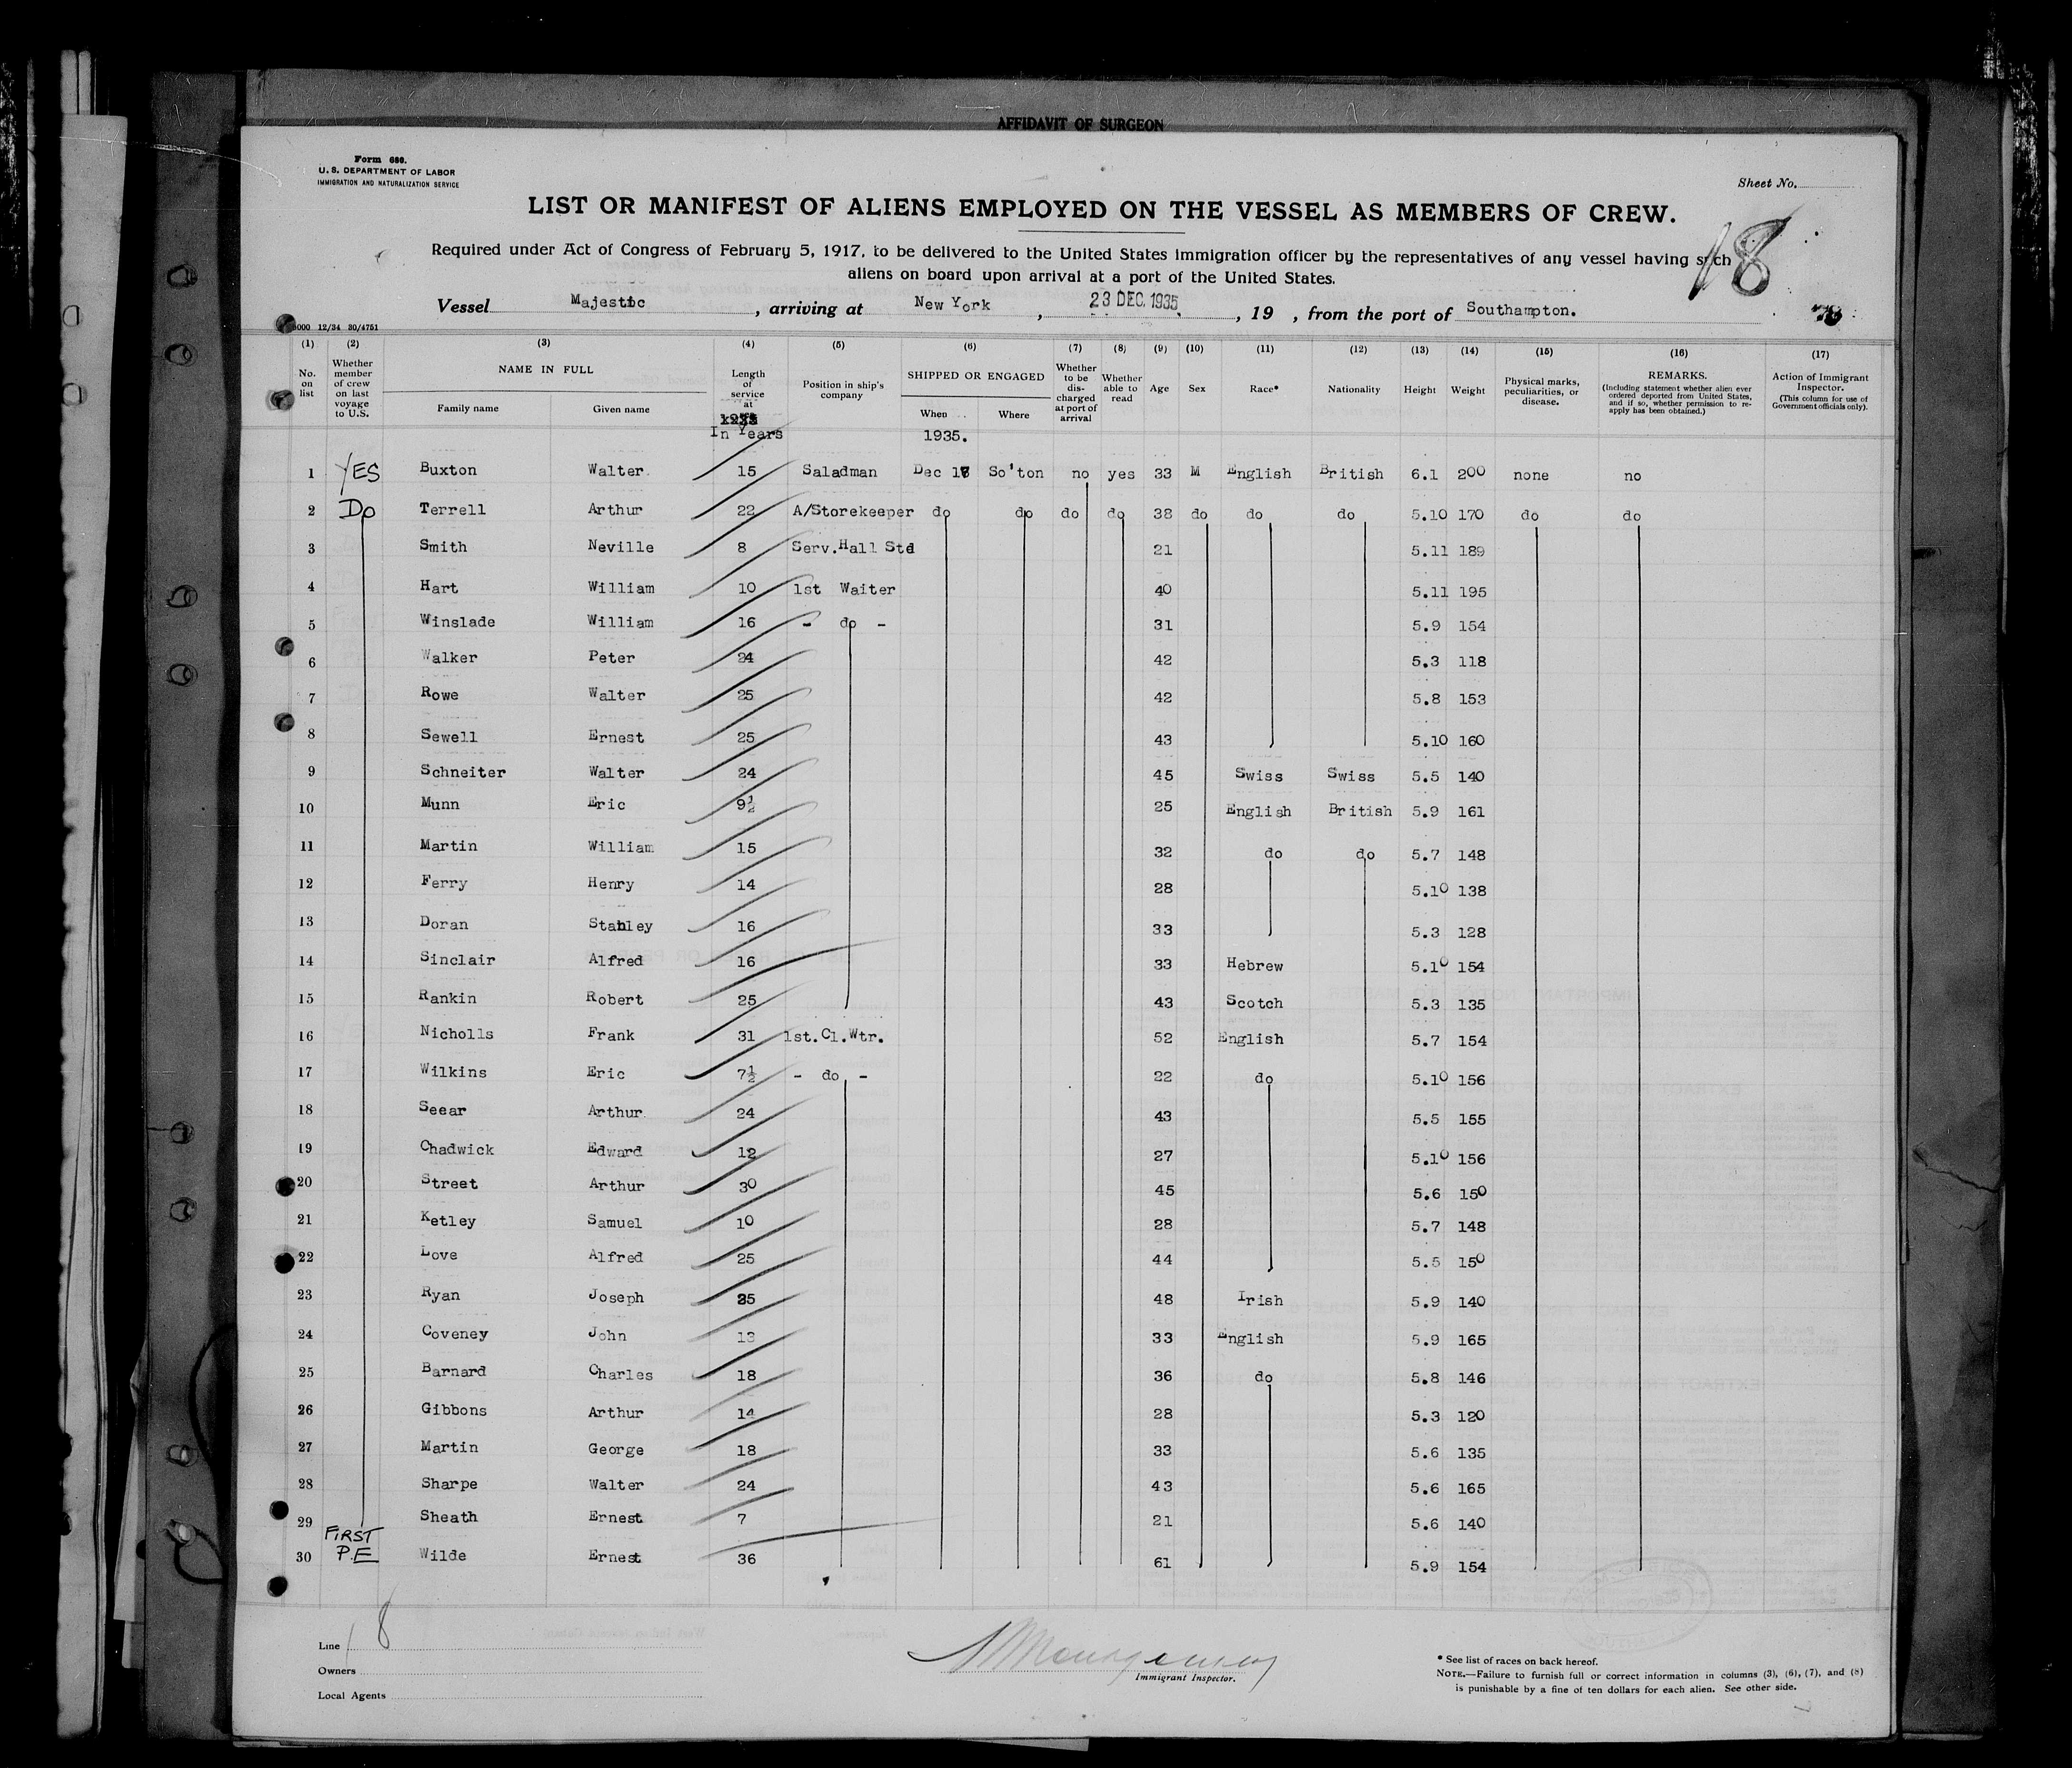 AFFIDAVIT OF SURGEON
Form 680.
U. S. DEPARTMENT OF LABOR
IMMIGRATION AND NATURALIZATION SERVICE
Sheet No.
LIST OR MANIFEST OF ALIENS EMPLOYED ON THE VESSEL AS MEMBERS OF CREW.
18
Required under Act of Congress of February 5, 1917, to be delivered to the United States immigration officer by the representatives of any vessel having such
aliens on board upon arrival at a port of the United States.
Vessel Majestic, arriving at New York, 23 DEC. 1935, 19 , from the port of Southampton.
000 12/34 30/4751
(1) (2) (3) (4) (5) (6) (7) (8) (9) (10) (11) (12) (13) (14) (15) (16) (17)
No. on list
Whether member of crew on last voyage to U.S.
NAME IN FULL
Family name Given name
Length of service at
In Years
Position in ship's company
SHIPPED OR ENGAGED
When Where
1935.
Whether to be discharged at port of arrival
Whether able to read
Age Sex Race* Nationality Height Weight
Physical marks, peculiarities, or disease.
REMARKS.
(Including statement whether alien ever ordered deported from United States, and if so, whether permission to reapply has been obtained.)
Action of Immigrant Inspector.
(This column for use of Government officials only).
1 YES Buxton Walter 15 Saladman Dec 18 So'ton no yes 33 M English British 6.1 200 none no
2 Do Terrell Arthur 22 A/Storekeeper do do do do 38 do do do 5.10 170 do do
3 Smith Neville 8 Serv.Hall Std 21 5.11 189
4 Hart William 10 1st Waiter 40 5.11 195
5 Winslade William 16 - do - 31 5.9 154
6 Walker Peter 24 42 5.3 118
7 Rowe Walter 25 42 5.8 153
8 Sewell Ernest 25 43 5.10 160
9 Schneiter Walter 24 45 Swiss Swiss 5.5 140
10 Munn Eric 9½ 25 English British 5.9 161
11 Martin William 15 32 do do 5.7 148
12 Ferry Henry 14 28 5.10 138
13 Doran Stanley 16 33 5.3 128
14 Sinclair Alfred 16 33 Hebrew 5.10 154
15 Rankin Robert 25 43 Scotch 5.3 135
16 Nicholls Frank 31 1st.Cl.Wtr. 52 English 5.7 154
17 Wilkins Eric 7½ - do - 22 do 5.10 156
18 Seear Arthur 24 43 5.5 155
19 Chadwick Edward 12 27 5.10 156
20 Street Arthur 30 45 5.6 150
21 Ketley Samuel 10 28 5.7 148
22 Love Alfred 25 44 5.5 150
23 Ryan Joseph 25 48 Irish 5.9 140
24 Coveney John 13 33 English 5.9 165
25 Barnard Charles 18 36 do 5.8 146
26 Gibbons Arthur 14 28 5.3 120
27 Martin George 18 33 5.6 135
28 Sharpe Walter 24 43 5.6 165
29 Sheath Ernest 7 21 5.6 140
30 FIRST P.E Wilde Ernest 36 61 5.9 154
Line 18
Owners
Local Agents
Immigrant Inspector.
* See list of races on back hereof.
NOTE.—Failure to furnish full or correct information in columns (3), (6), (7), and (8)
is punishable by a fine of ten dollars for each alien. See other side.